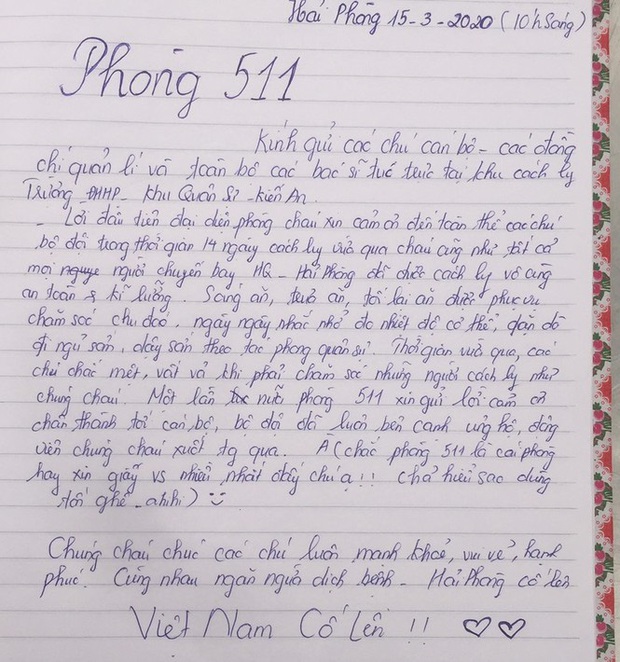 Hải Phòng 15-3-2020 (10h sáng)
Phòng 511
Kính gửi các chú cán bộ - các đồng
chí quản lí và toàn bộ các bác sĩ túc trực tại khu cách ly
Trường ĐHHP - Khu Quân Sự - Kiến An.
- Lời đầu tiên đại diện phòng cháu xin cảm ơn đến toàn thể các chú
bộ đội trong thời gian 14 ngày cách ly vừa qua cháu cũng như tất cả
mọi nguye người chuyến bay HQ - Hải Phòng đã được cách ly vô cùng
an toàn & kĩ lưỡng. Sáng ăn, trưa ăn, tối lại ăn được phục vụ
chăm sóc chu đáo, ngày ngày nhắc nhở đo nhiệt độ cơ thể, dặn dò
đi ngủ sớm, dậy sớm theo tác phong quân sự. Thời gian vừa qua, các
chú chắc mệt, vất vả khi phải chăm sóc những người cách ly như
chúng cháu. Một lần nữa phòng 511 xin gửi lời cảm ơn
chân thành tới cán bộ, bộ đội đã luôn bên cạnh ủng hộ, động
viên chúng cháu suốt tg qua. À (chắc phòng 511 là cái phòng
hay xin giấy vs nhiều nhất đấy chú ạ!! chả hiểu sao dùng
tốn ghê - ahihi) :)
Chúng cháu chúc các chú luôn mạnh khoẻ, vui vẻ, hạnh
phúc. Cùng nhau ngăn ngừa dịch bệnh - Hải Phòng cố lên
Việt Nam Cố Lên !! ♡♡